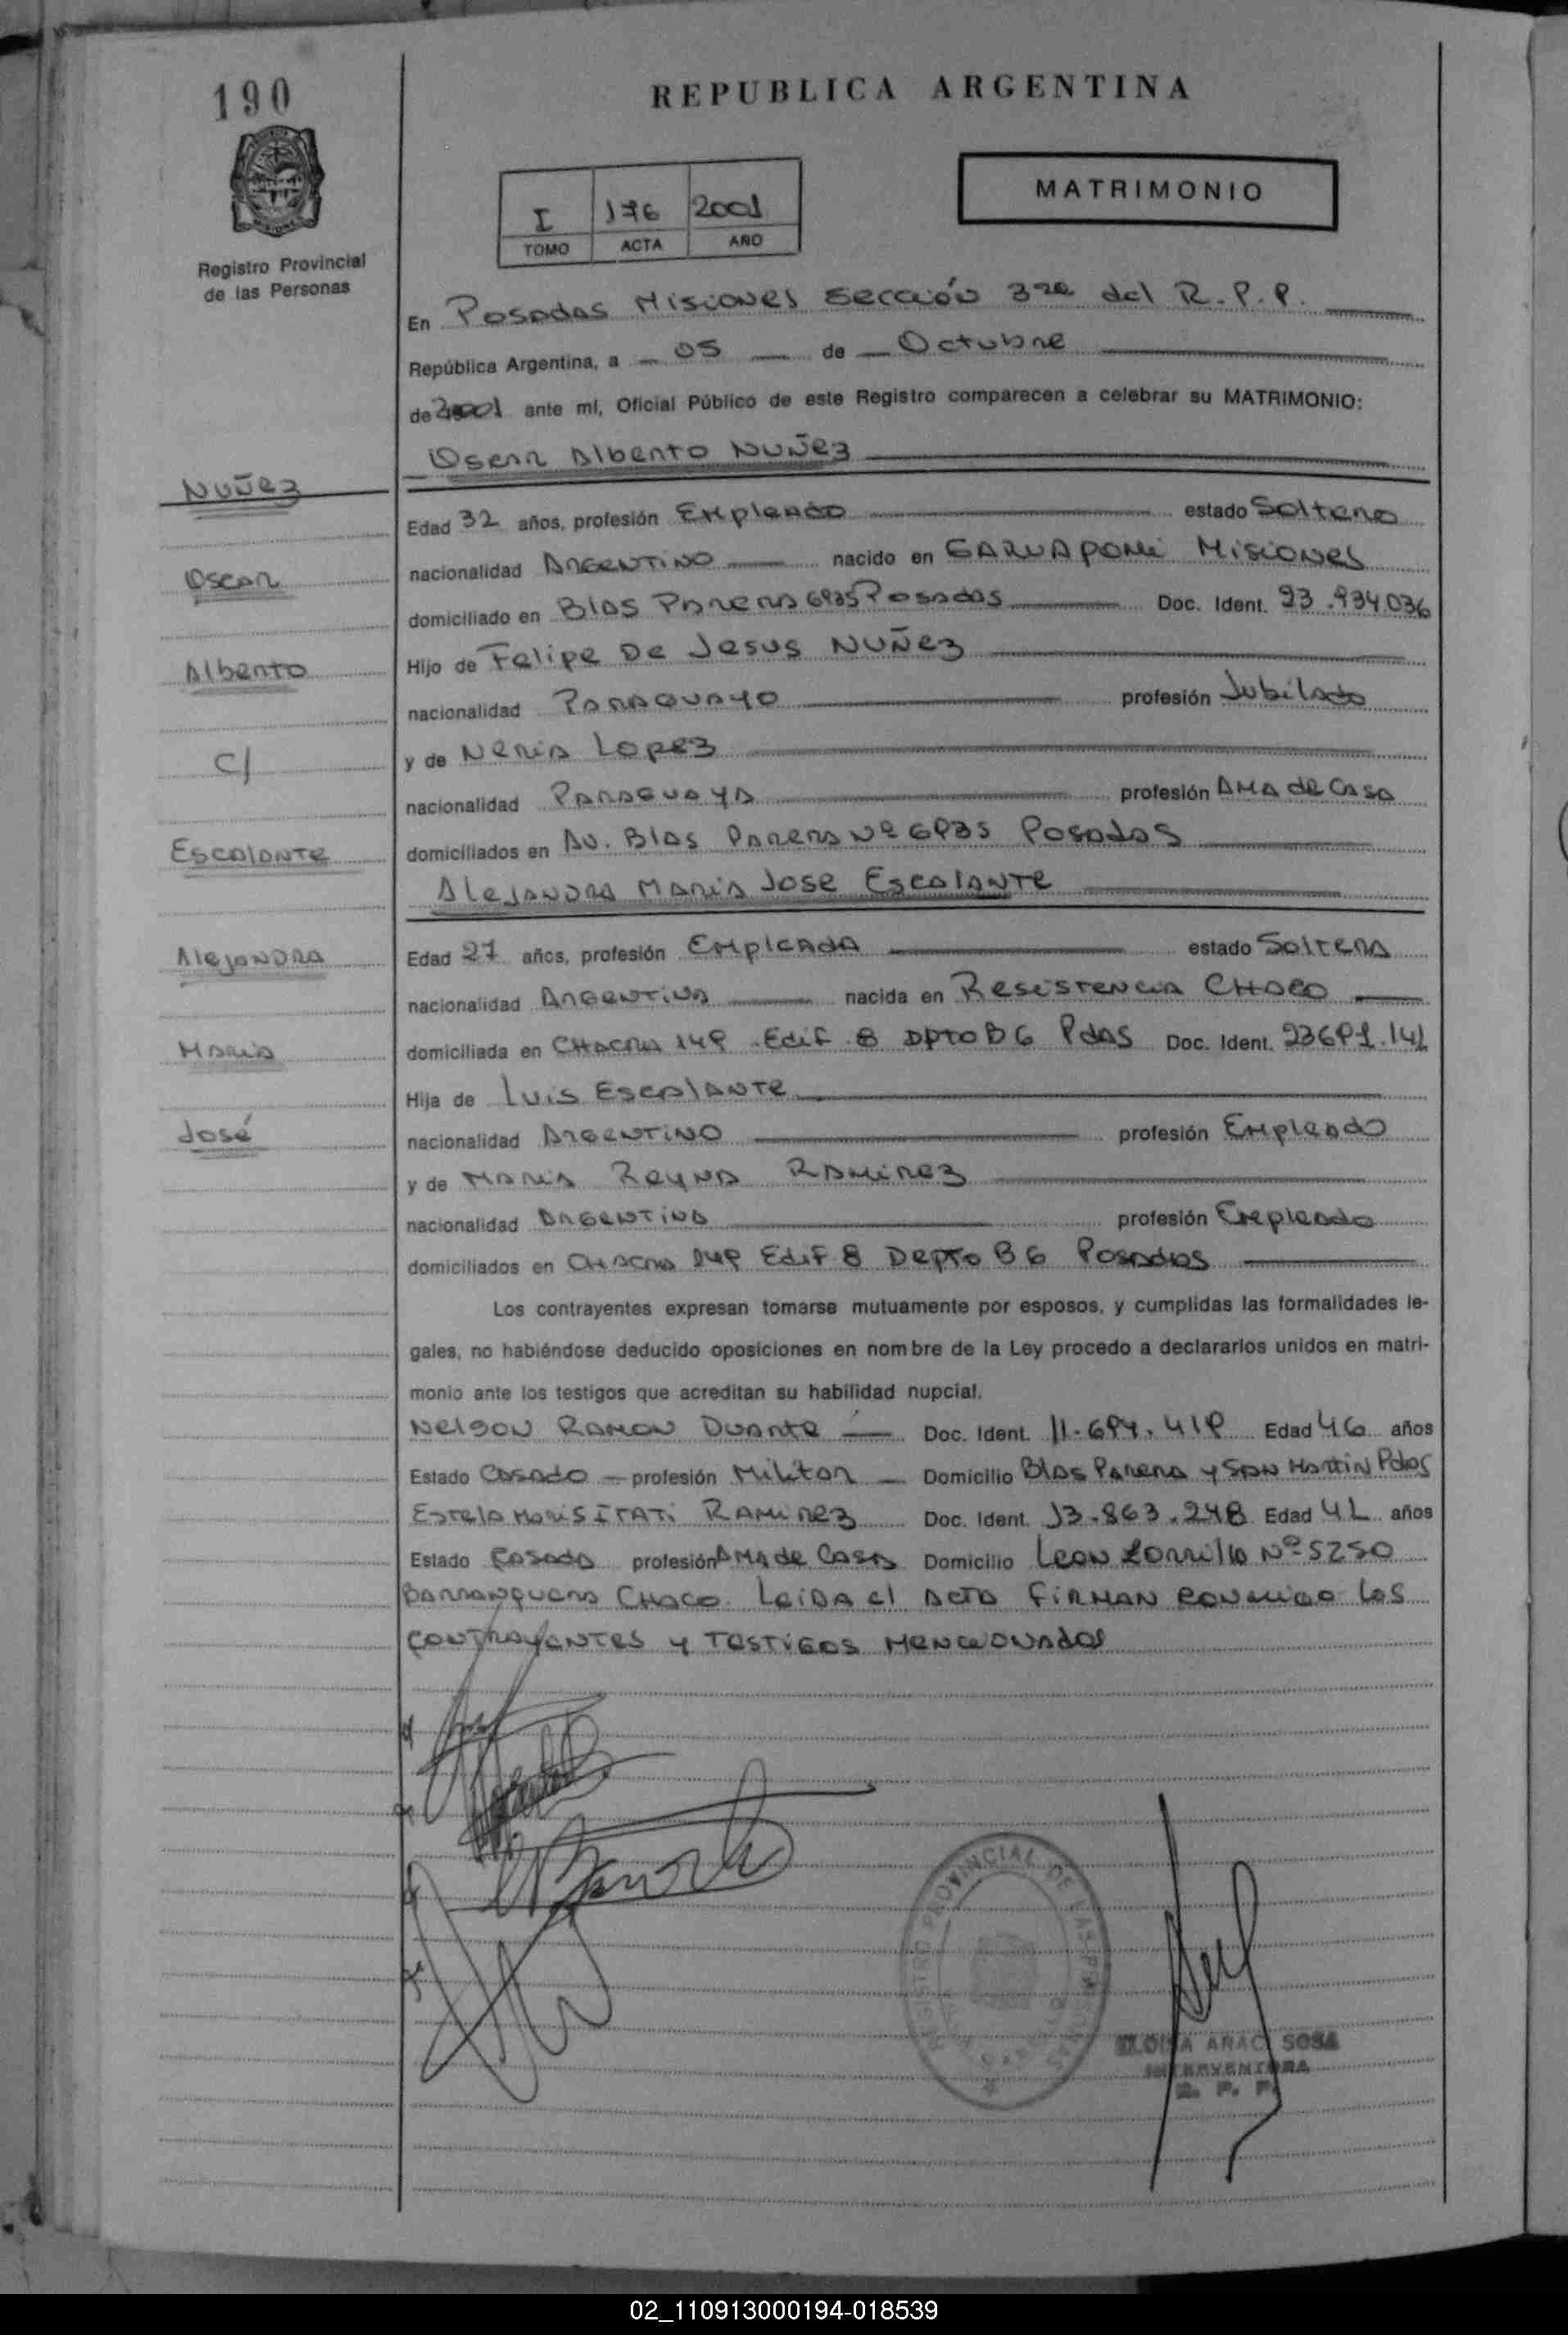 190
REPUBLICA ARGENTINA
MATRIMONIO
I 176 2001
TOMO ACTA AÑO
Registro Provincial
de las Personas
En Posadas Misiones Sección 3ra del R.P.P.
República Argentina, a 05 de Octubre
de 2001 ante mi, Oficial Público de este Registro comparecen a celebrar su MATRIMONIO:
Oscar Alberto NUÑez
NUÑez
Edad 32 años, profesión Empleado estado Soltero
nacionalidad Argentino nacido en GARUAPOMi Misiones
Oscar
domiciliado en Blas Parera 6935 Posadas Doc. Ident. 23.934.036
Hijo de Felipe De Jesus NUÑez
Alberto
nacionalidad Paraguayo profesión Jubilado
y de Neria Lopez
C/
nacionalidad Paraguaya profesión AMA de Casa
domiciliados en Av. Blas Parera Nº 6935 Posadas
Escalante
Alejandra Maria Jose Escalante
Edad 27 años, profesión Empleada estado Soltera
Alejandra
nacionalidad Argentina nacida en Resistencia CHACO
domiciliada en CHACRA 149 Edif 8 DPTO B6 Pdas Doc. Ident. 23691.141
Maria
Hija de Luis Escalante
José
nacionalidad Argentino profesión Empleado
y de Maria Reyna Ramirez
nacionalidad Argentina profesión Empleada
domiciliados en CHACRA 149 Edif 8 Depto B6 Posadas
Los contrayentes expresan tomarse mutuamente por esposos, y cumplidas las formalidades le-
gales, no habiéndose deducido oposiciones en nombre de la Ley procedo a declararlos unidos en matri-
monio ante los testigos que acreditan su habilidad nupcial.
Nelson Ramon Duarte Doc. Ident. 11.694.419 Edad 46 años
Estado Casado profesión Militar Domicilio Blas Parera y San Martin Pdas
Estela Maris ITATi Ramirez Doc. Ident. 13.863.248 Edad 41 años
Estado Casada profesión AMA de Casa Domicilio Leon Zorrilla Nº 5250
Barranquera Chaco. Leida el Acta firman conmigo los
contrayentes y testigos mencionados
REGISTRO PROVINCIAL DE LAS PERSONAS
SOSA
INTERVENTORA
R. P. P.
02_110913000194-018539